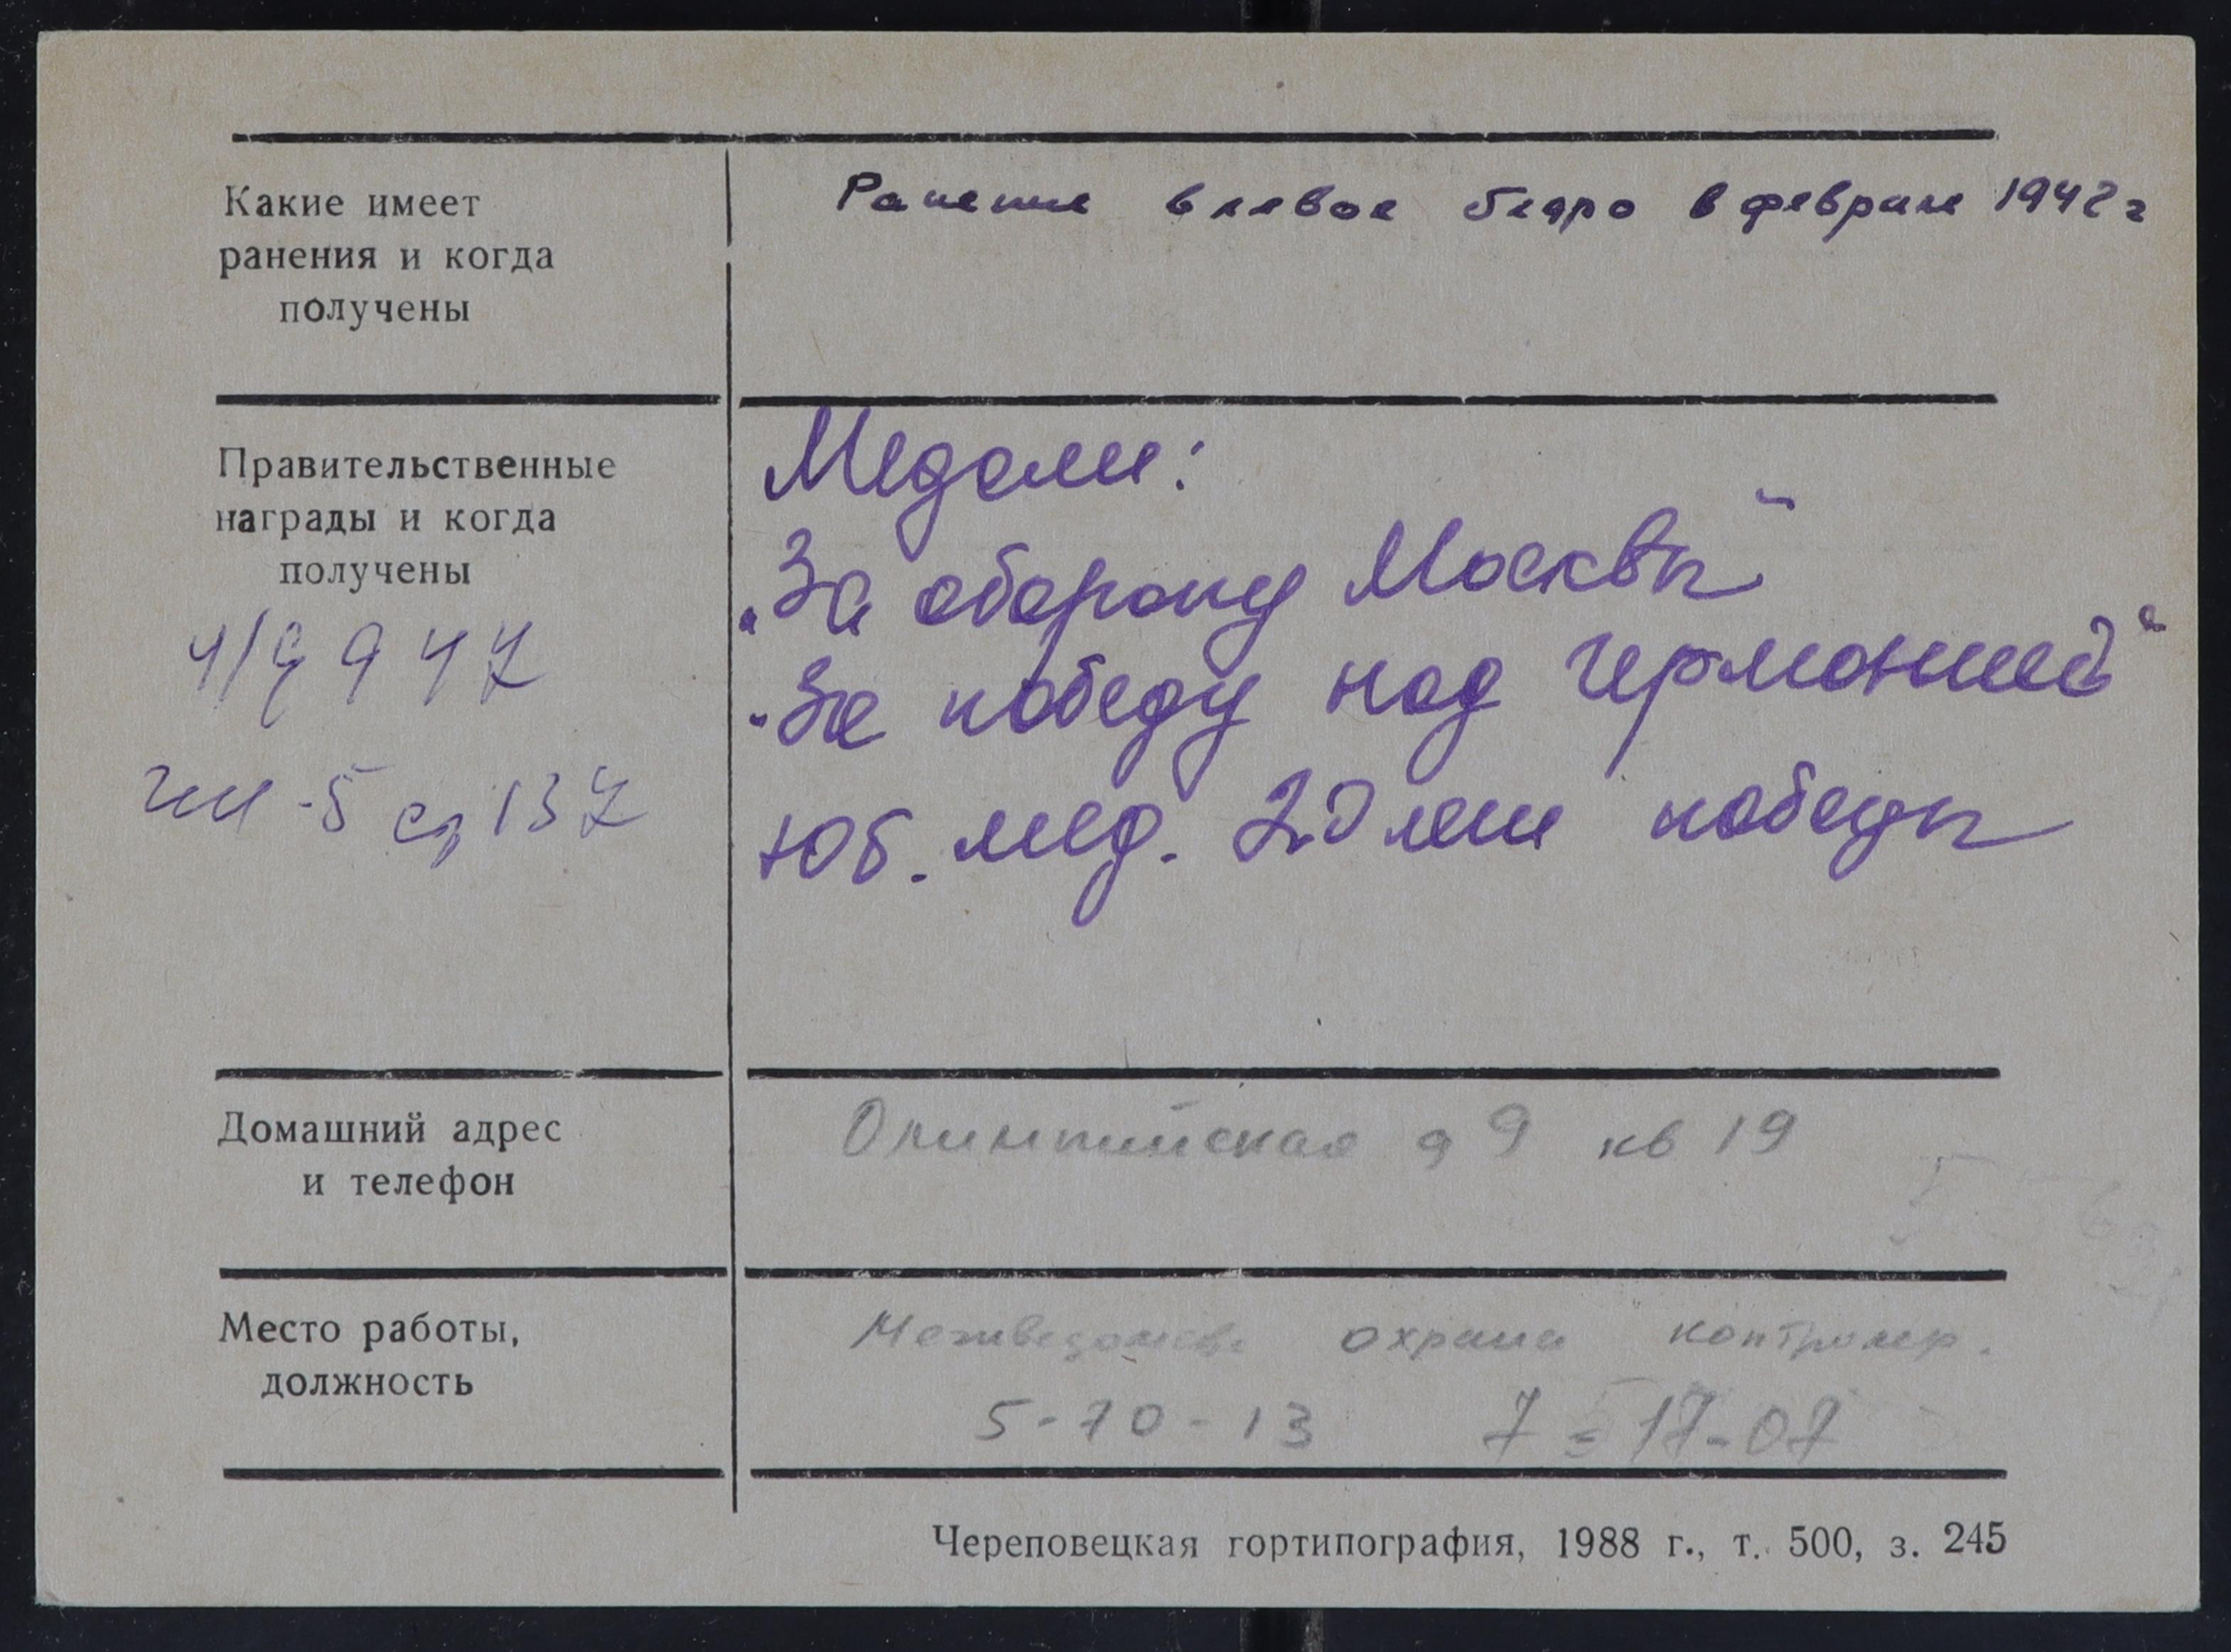 Какие имеет
ранения и когда
получены
Ранение в левое бедро в феврале 1942 г
Правительственные
награды и когда
получены
Медали:
„За оборону Москвы“
„За победу над Германией“
Юб. мед. 20 лет победы
Домашний адрес
и телефон
Олимпийская д 9 кв 19
Место работы,
должность
Межведомств. охрана контролер.
5-70-13 7-17-07
Череповецкая гортипография, 1988 г., т. 500, з. 245